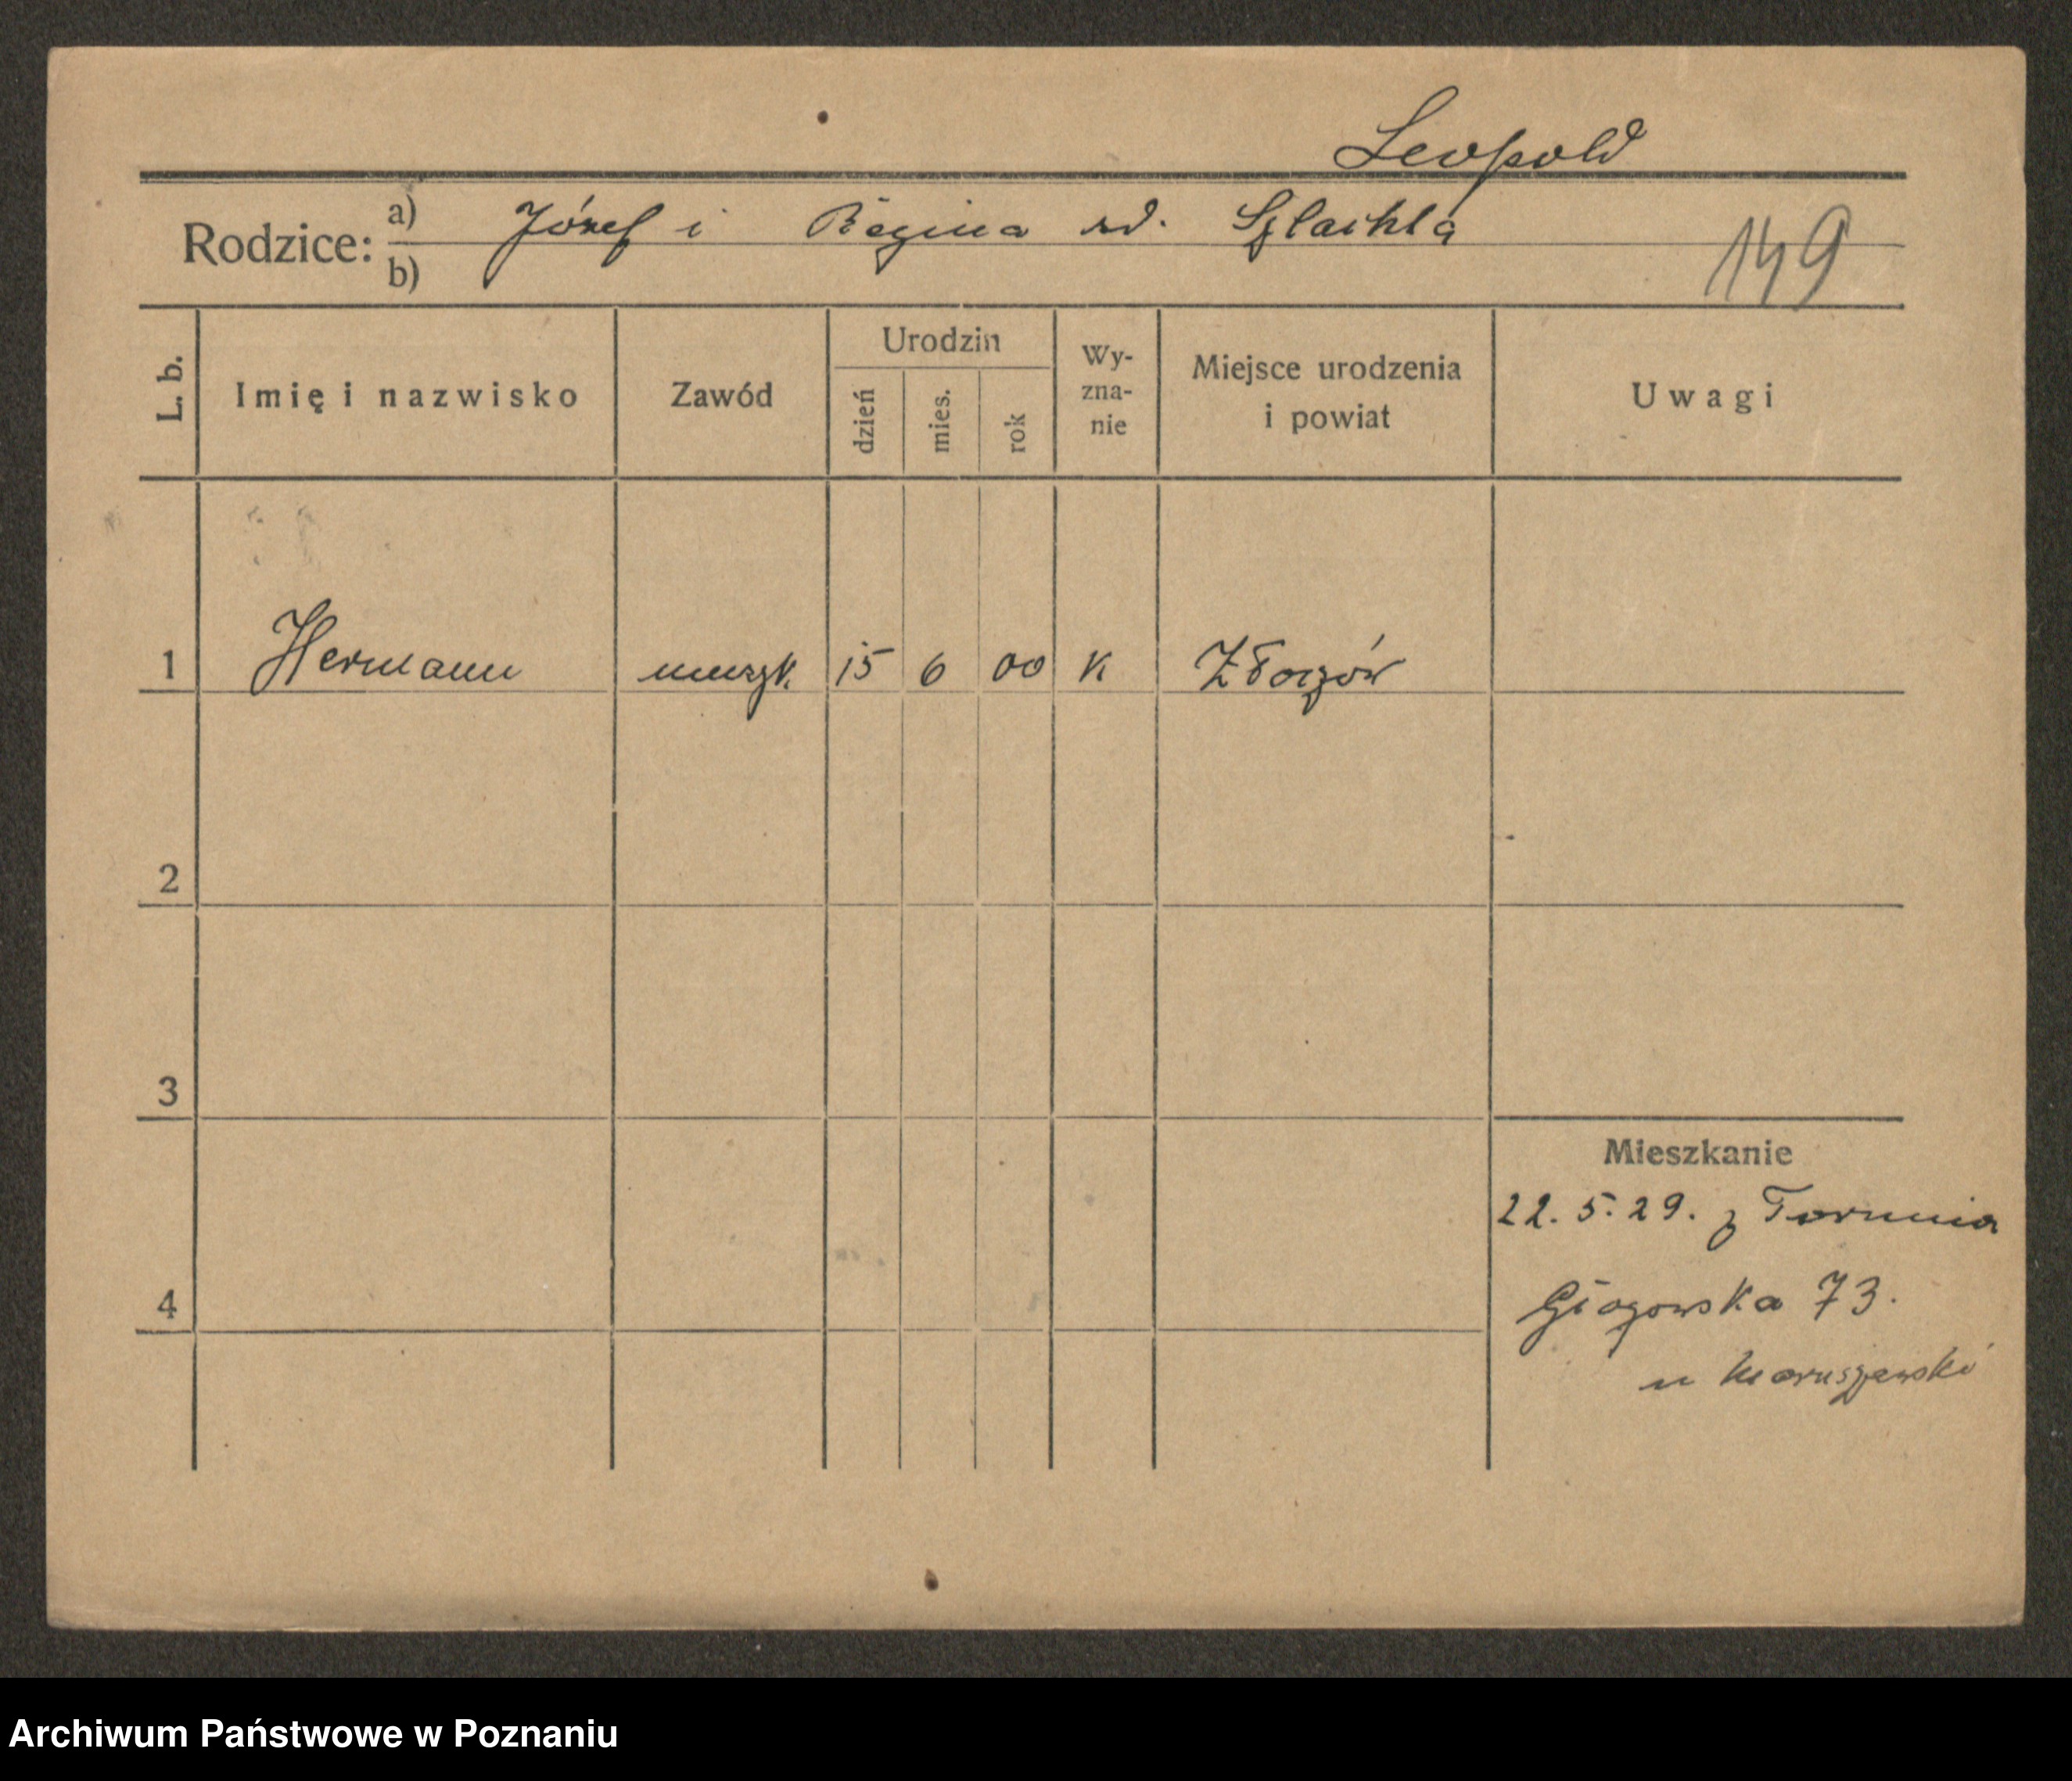 Leopold
Rodzice: a) Józef i Regina zd. Szlachta
b)
149
L. b. Imię i nazwisko Zawód Urodzin dzień mies. rok Wy-zna-nie Miejsce urodzenia i powiat Uwagi
1 Hermann muzyk. 15 6 00 K Złoczów
2
3
Mieszkanie
22. 5. 29. z Torunia
4
Głogowska 73.
u
Archiwum Państwowe w Poznaniu